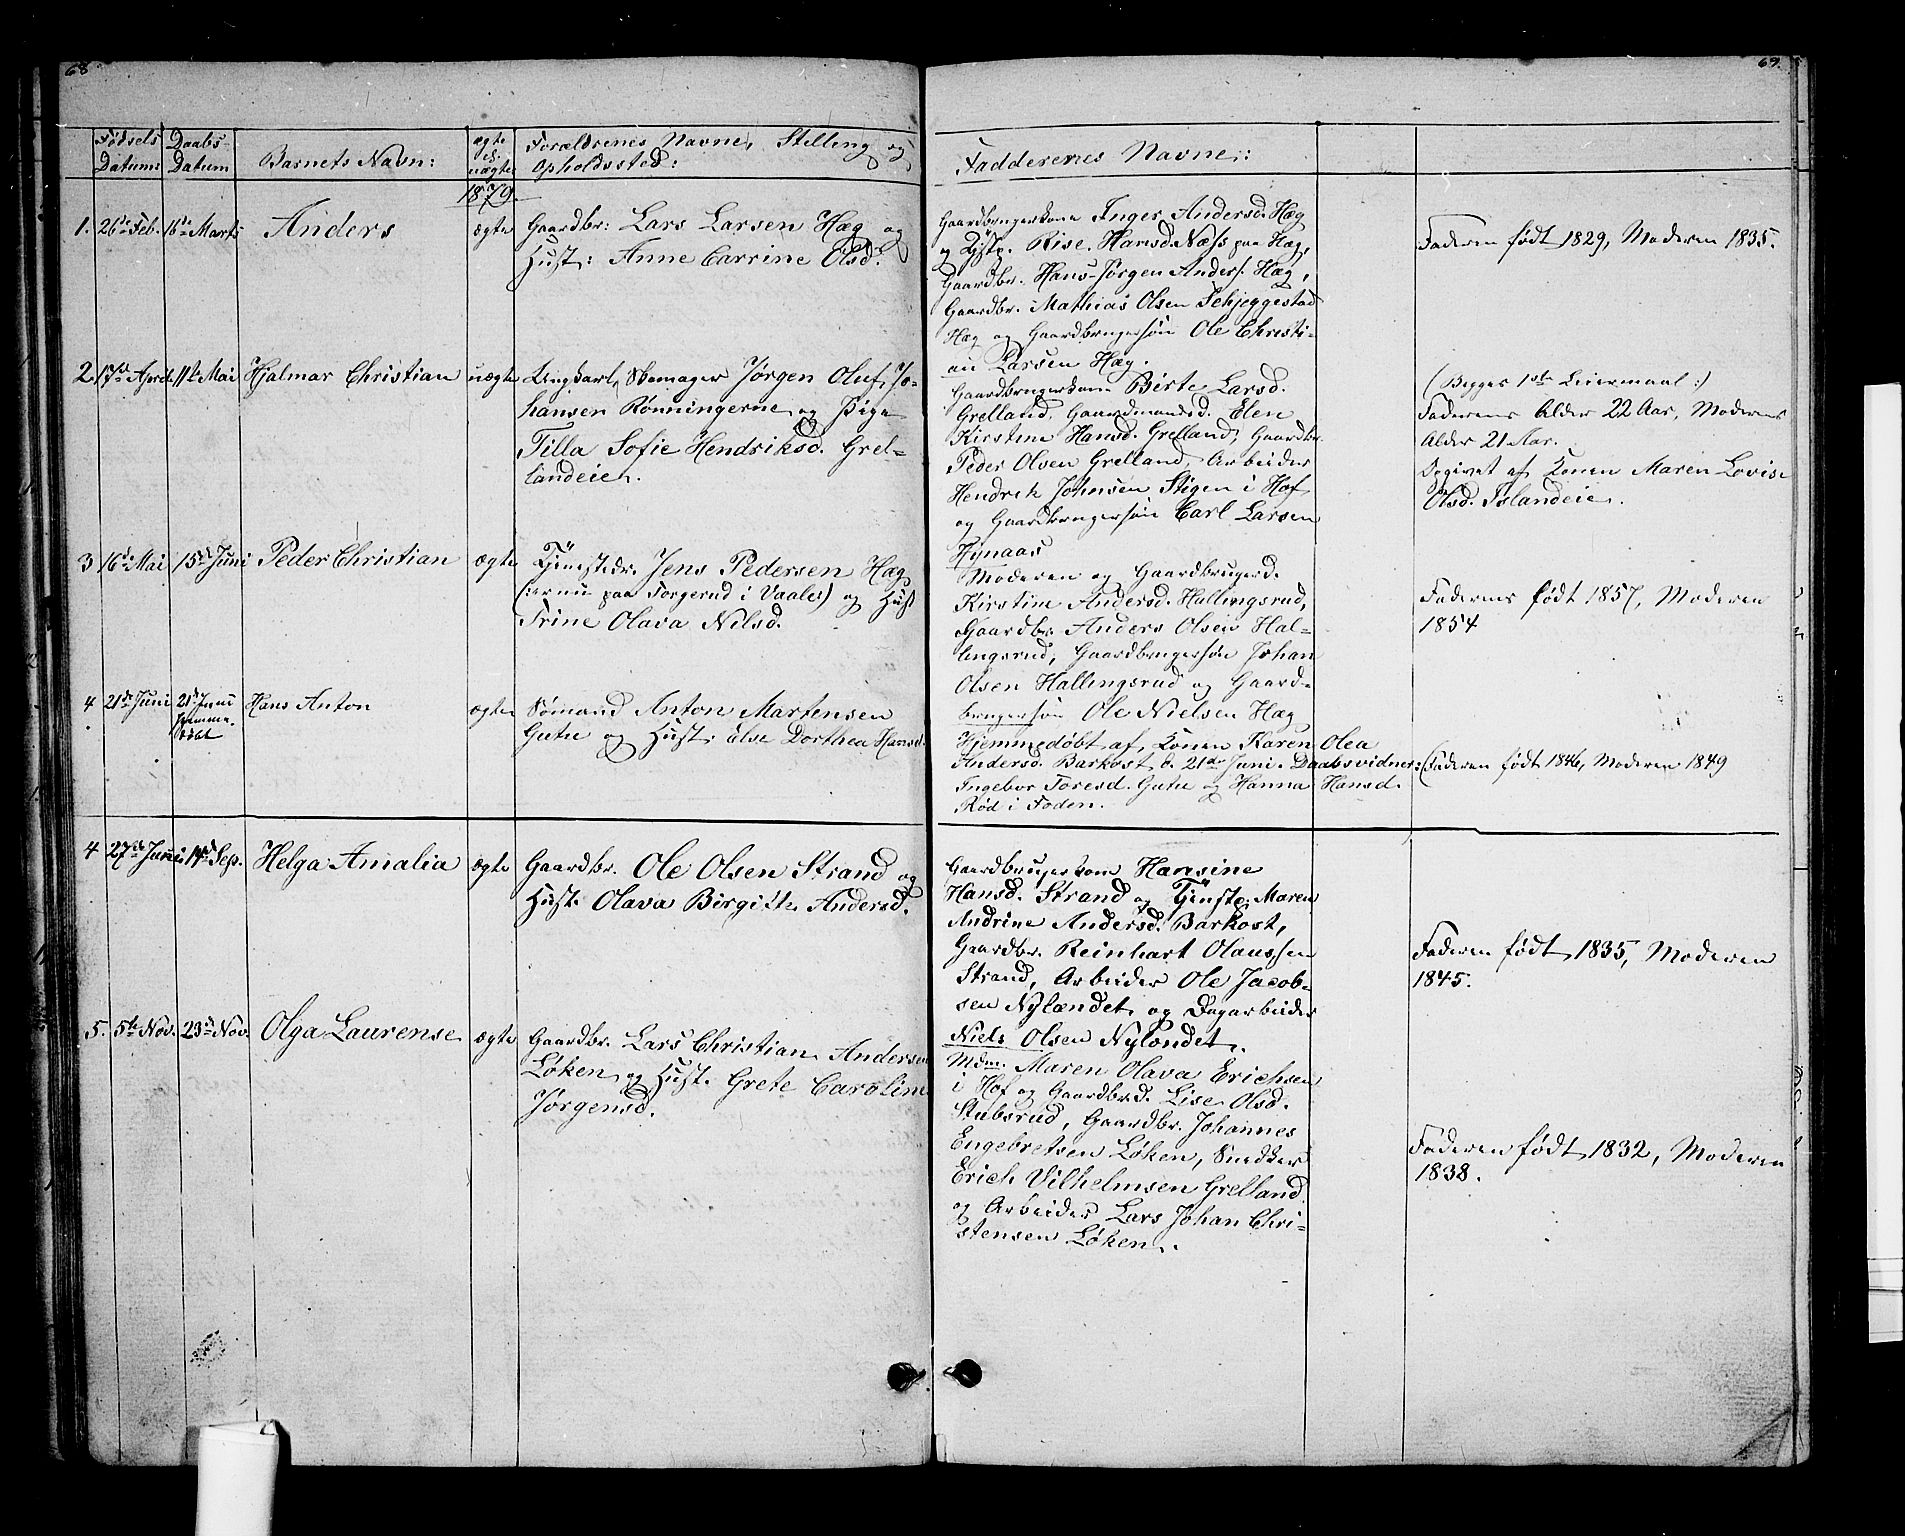 68
Fødsels Datum: Daabs-Datum Barnets Navn: ægte el. uægte Forældrenes Navne, Stilling og Opholdssted:
1879.
1. 26de Feb. 16de Marts Anders ægte Gaardbr: Lars Larsen Hæg og
Hust: Anne Carrine Olsd.
2 17de April 11te Mai Hjalmar Christian uægte Ungkarl, Skomager Jørgen Oluf Jo-
hansen Rønningerne og Pige
Tilla Sofie Hendriksd. Grel-
landeie.
3 16de Mai 15de Juni Peder Christian ægte Tjenestedr. Jens Pedersen Hæg
(: er nu paa Forgerud i Vaale:) og Hust
Trine Olava Nilsd.
4 21de Juni 21de Juni hjemme-døbt Hans Anton ægte Sømand Anton Martensen
Gutu og Hust: Else Dorthea Hansd.
4 27de Juni 14de Sep. Helga Amalia ægte Gaardbr. Ole Olsen Strand og
Hust. Olava Birgitte Andersd.
5. 5te Nov. 23de Nov. Olga Laurense ægte Gaardbr. Lars Christian Andersen
Løken og Hust. Grete Caroline
Jørgensd.
69.
Faddernes Navne:
Gaardbrugerkone Inger Andersd. Hæg
og Rise Hansd. Næss paa Hæg,
Gaardbr. Hans Jørgen Anders. Hæg,
Gaardbr. Mathias Olsen Schjeggestad
Hæg og Gaardbrugersøn Ole Christi-
an Larsen Hæg.
Faderen født 1829, Moderen 1835.
Gaardbrugerkone Birte Larsd.
Grelland, Gaardmandsd. Elen
Kirstine Hansd. Grelland, Gaardbr.
Peder Olsen Grelland, Arbeider
Hendrik Johnsen Stigen i Hof
og Gaardbrugersøn Carl Larsen
Hynaas
(Begges 1ste Leiermaal:)
Faderens Alder 22 Aar, Moderens
Alder 21 Aar.
Opgivet af Konen Maren Lovise
Olsd. Islandeie.
Moderen og Gaardbrugerd.
Kirstine Andersd. Hallingsrud,
Gaardbr. Anders Olsen Hal-
lingsrud, Gaardbrugersøn Johan
Olsen Hallingsrud og Gaard-
brugersøn Ole Nielsen Hæg
Faderens født 1857, Moderen
1854
Hjemmedøbt af Konen Karen Olea
Andersd. Barkost d. 21de Juni. Daabsvidner:
Ingebor Toresd. Gutu og Hanna Hansd.
Rød i Foden.
Faderen født 1846, Moderen 1849
Gaardbrugerkone Hansine
Hansd. Strand og Tjenstp. Maren
Andrine Andersd. Barkost,
Gaardbr. Reinhart Olaussen
Strand, Arbeider Ole Jacob-
sen Nylændet og Dagarbeider
Niels Olsen Nylændet.
Faderen født 1835, Moderen
1845.
Mdm. Maren Olava Erichsen
i Hof og Gaardbrd. Lise Olsd.
Stubsrud, Gaardbr. Johannes
Engebretsen Løken, Snedker
Erich Vilhelmsen Grelland
og Arbeider Lars Johan Chri-
stensen Løken.
Faderen født 1832, Moderen
1838.